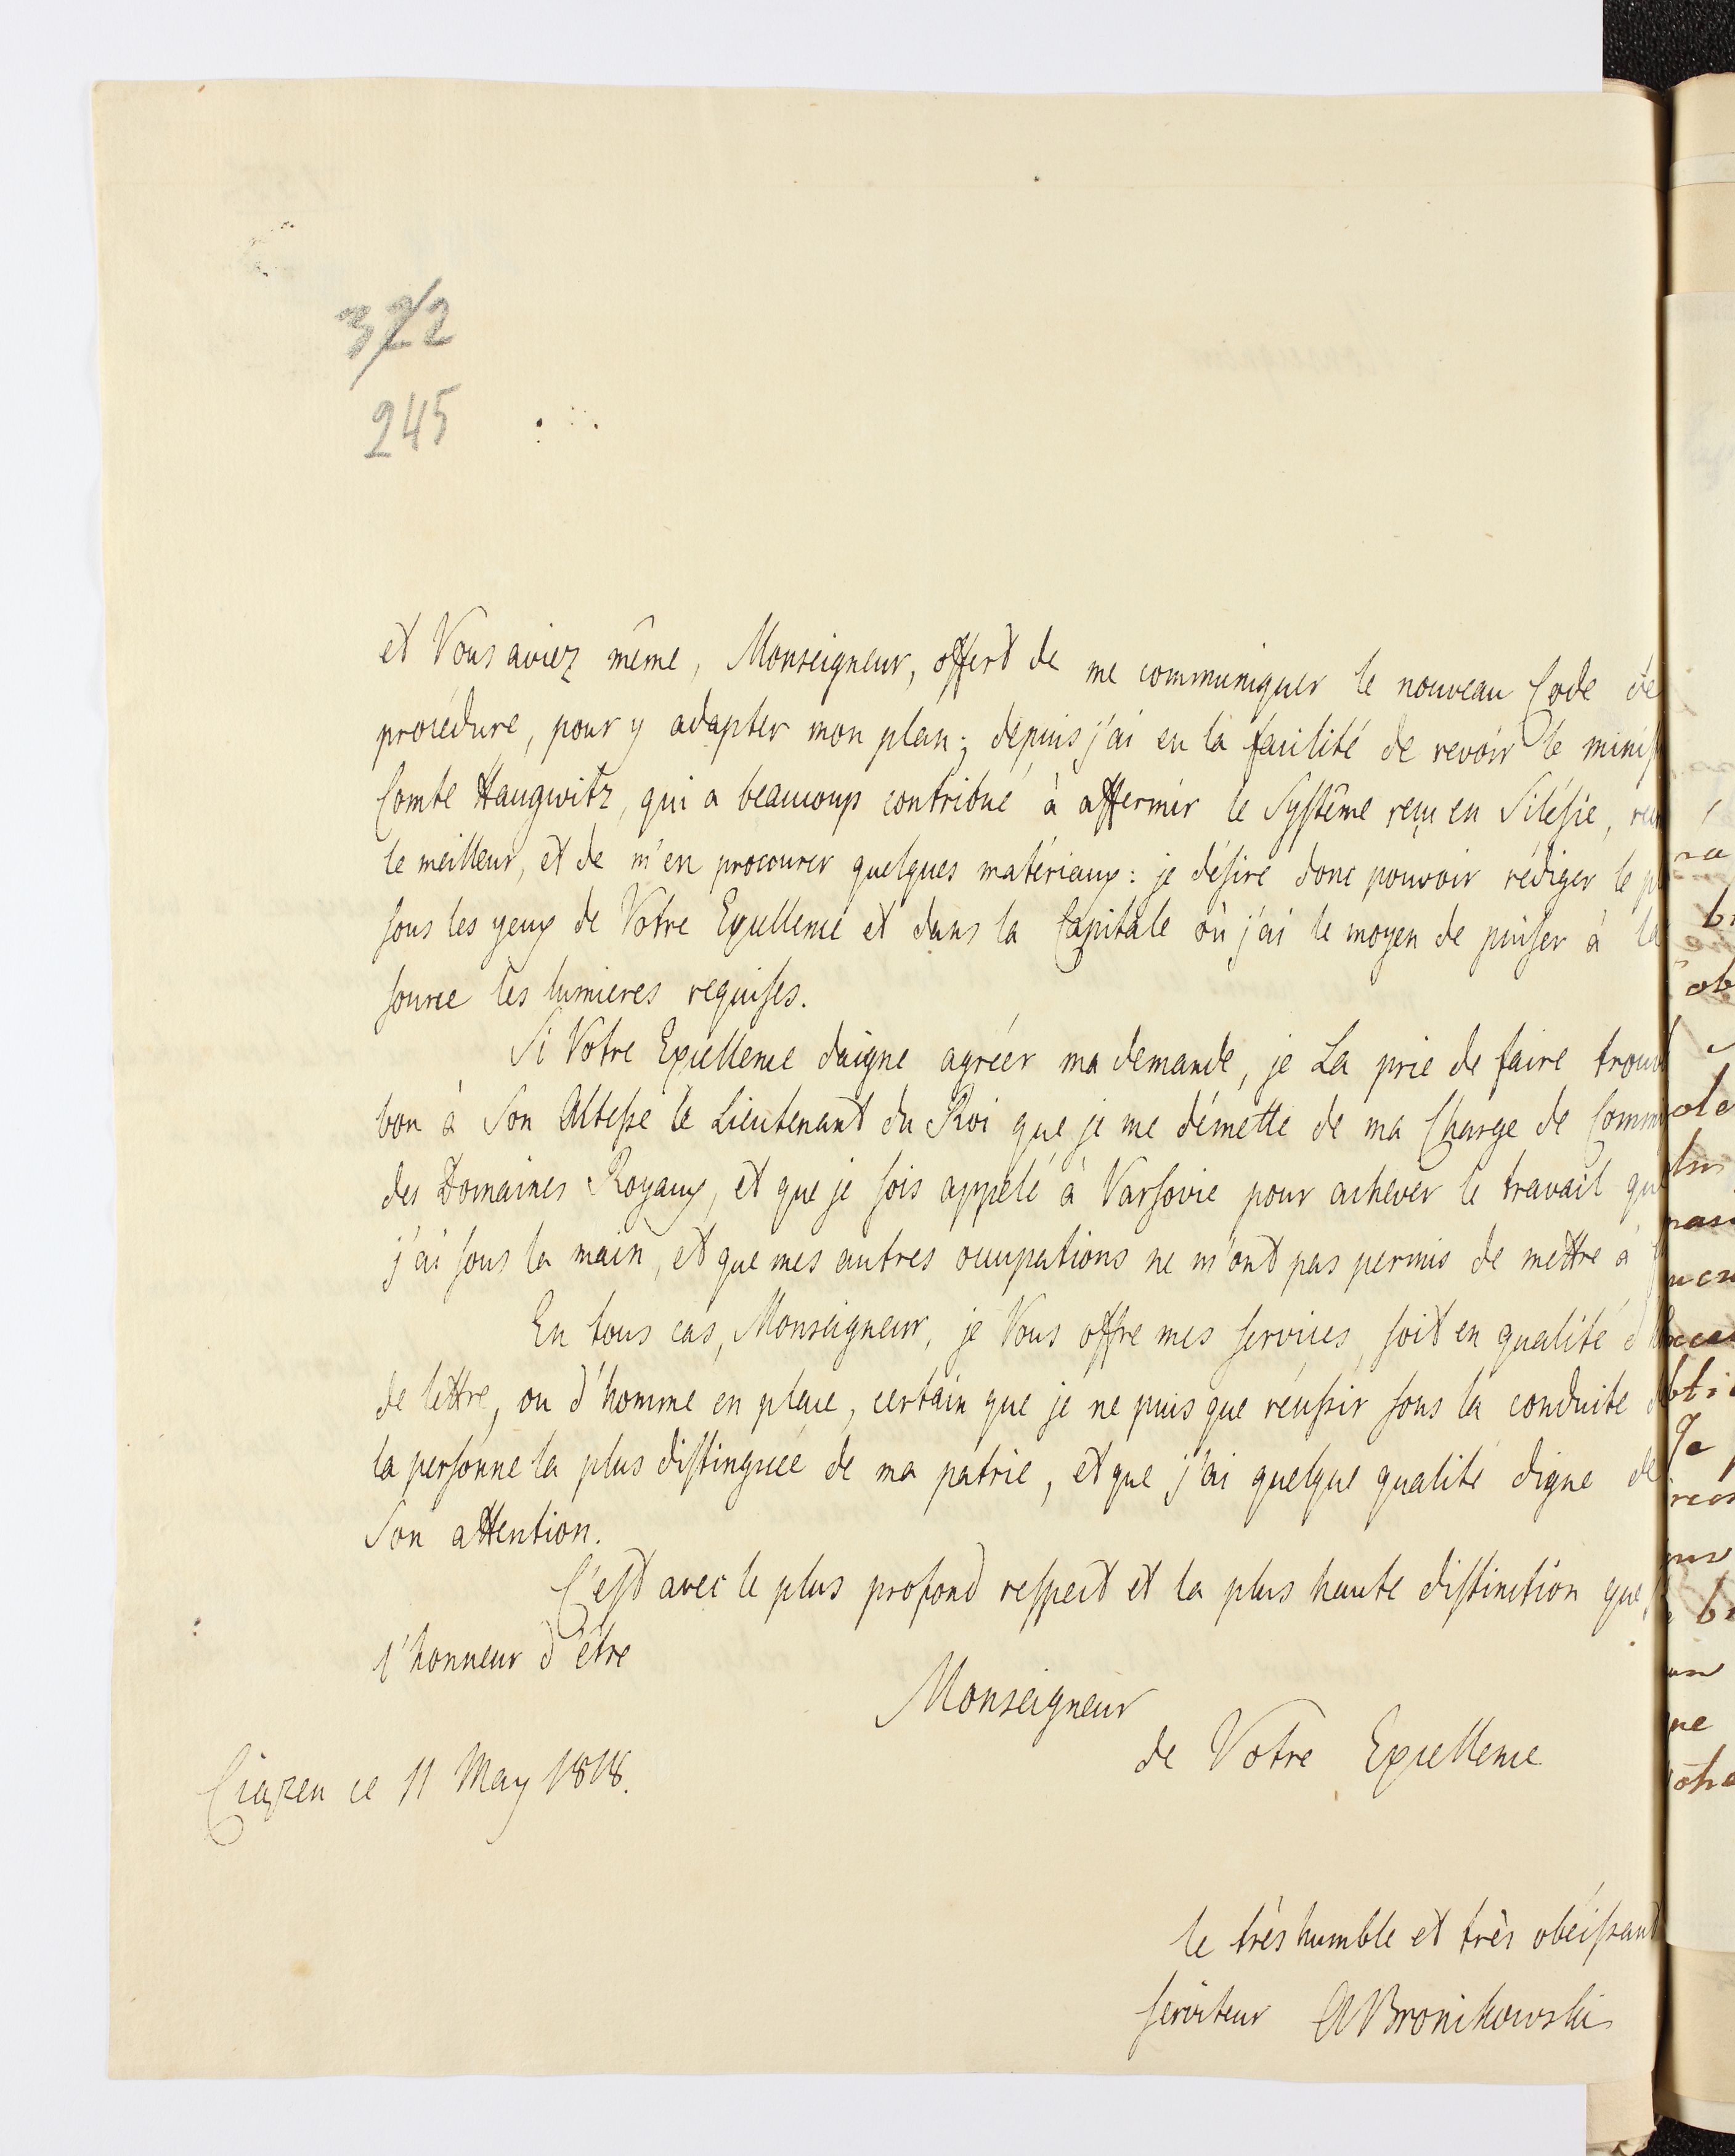 322
245
et Vous aviez même, Monseigneur, offert de me communiquer le nouveau Code de
procédure, pour y adapter mon plan; depuis j'ai eu la facilité de revoir le minist
Comte Haugwitz, qui a beaucoup contribué à affermir le Systême reçu en Silésie,
le meilleur, et de m'en procourer quelques matériaux: je désire donc pouvoir rédiger le
sous les yeux de Votre Excellence et dans la Capitale où j'ai le moyen de puiser à la
source les lumieres requises.
Si Votre Excellence daigne agréér ma demande, je La prie de faire trouv
bon à Son Altesse le Lieutenant du Roi que je me démette de ma Charge de Commi
des Domaines Royaux, et que je sois appelé à Varsovie pour achever le travail que
j'ai sous la main, et que mes autres occupations ne m'ont pas permis de mettre à
En tous cas, Monseigneur, je Vous offre mes services, soit en qualité d'
de lettre, ou d'homme en place, certain que je ne puis que réussir sous la conduite d
la personne la plus distinguée de ma patrie, et que j'ai quelque qualité digne de
Son attention.
C'est avec le plus profond respect et la plus haute distinction que
l'honneur d'être
Monseigneur
de Votre Excellence
Ciązen ce 11 May 1818.
le très humble et très obéissant
serviteur ABronikowski